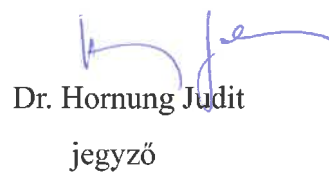 Dr. Hornung Judit
jegyző